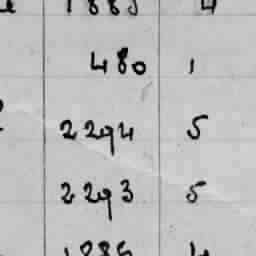 1883 4
480 1
2294 5
2293 5